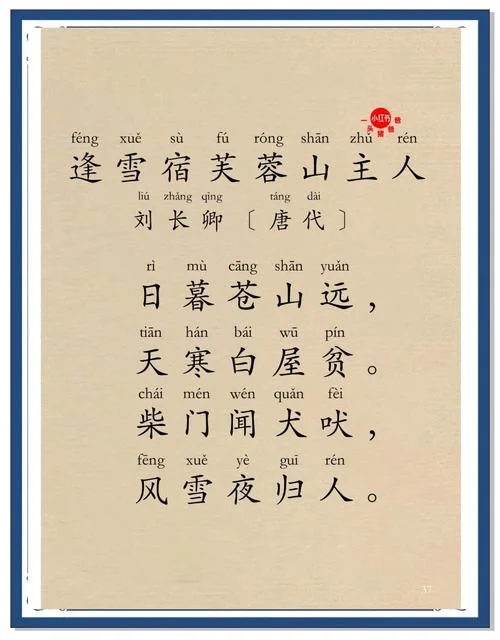 小红书
一头猪爸爸
féng xuě sù fú róng shān zhǔ rén
逢雪宿芙蓉山主人
liú zhǎng qīng táng dài
刘长卿〔唐代〕
rì mù cāng shān yuǎn
日暮苍山远，
tiān hán bái wū pín
天寒白屋贫。
chái mén wén quǎn fèi
柴门闻犬吠，
fēng xuě yè guī rén
风雪夜归人。
37